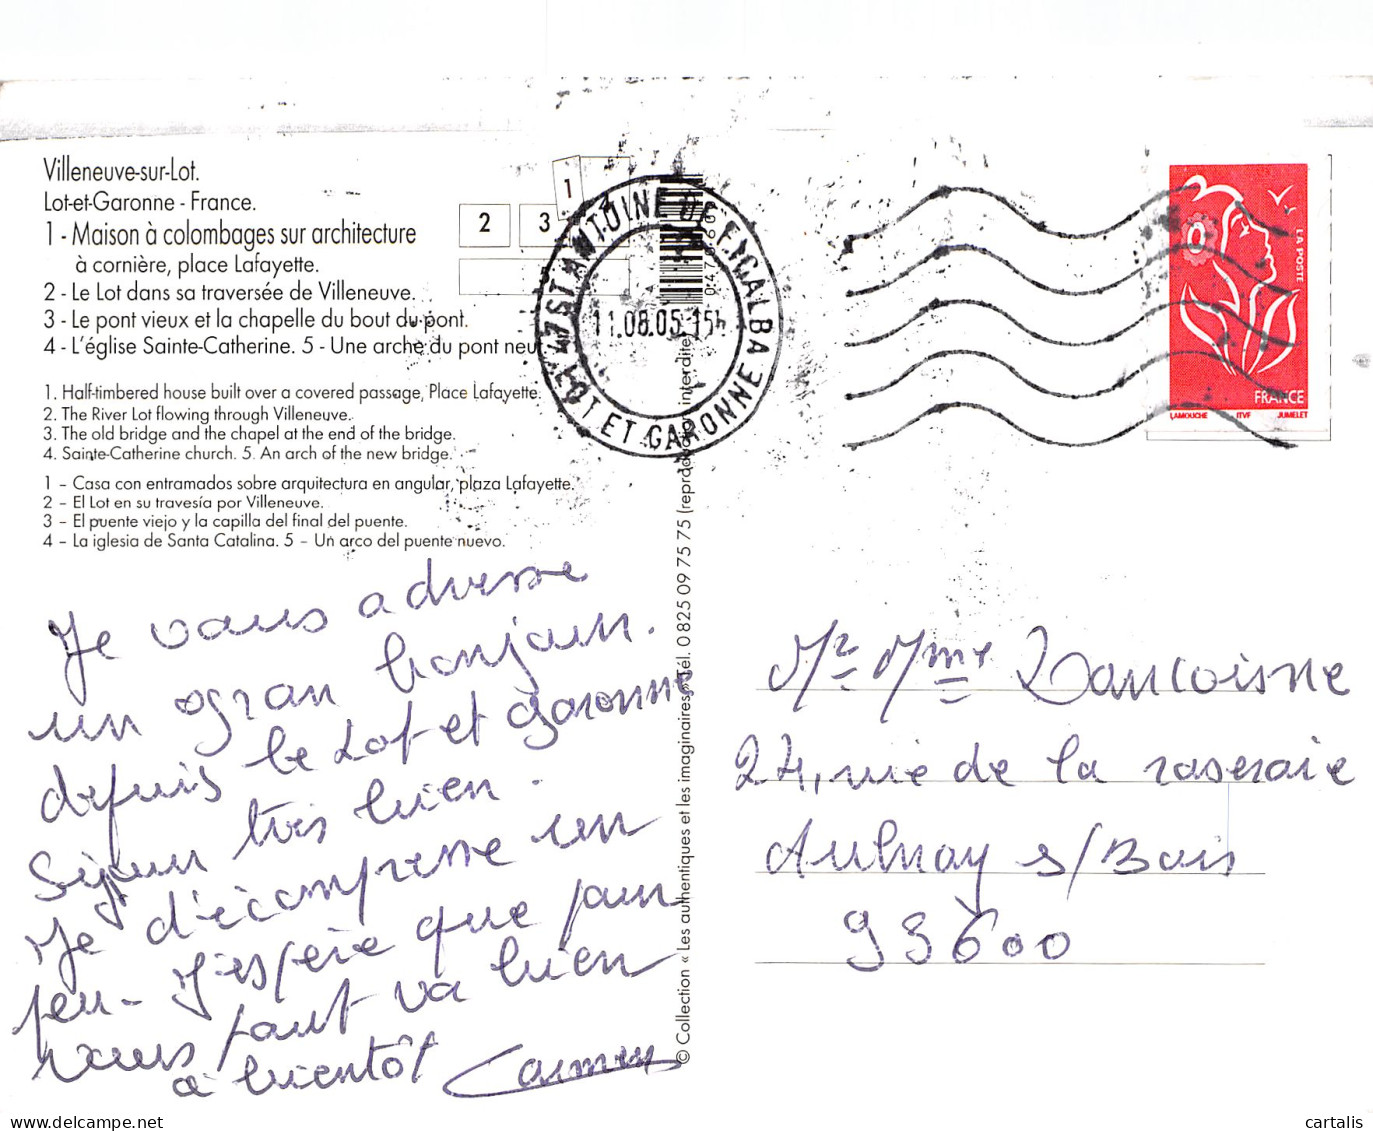 Villeneuve-sur-Lot.
Lot-et-Garonne - France.
1 - Maison à colombages sur architecture
à cornière, place Lafayette.
2 - Le Lot dans sa traversée de Villeneuve.
3 - Le pont vieux et la chapelle du bout du pont.
4 - L'église Sainte-Catherine. 5 - Une arche du pont neuf.
1. Half-timbered house built over a covered passage, Place Lafayette.
2. The River Lot flowing through Villeneuve.
3. The old bridge and the chapel at the end of the bridge.
4. Sainte-Catherine church. 5. An arch of the new bridge.
1 – Casa con entramados sobre arquitectura en angular, plaza Lafayette.
2 – El Lot en su travesía por Villeneuve.
3 – El puente viejo y la capilla del final del puente.
4 – La iglesia de Santa Catalina. 5 – Un arco del puente nuevo.
1
2 3
47 ST ANTOINE DE FICALBA
11.08.05 15h
LOT ET GARONNE
LA POSTE
FRANCE
LAMOUCHE ITVF JUMELET
© Collection « Les authentiques et les imaginaires » Tél. 0 825 09 75 75 (reproduction interdite)
Je vous adresse
un gran bonjour.
depuis le Lot et Garonne
Séjour très bien.
Je décompresse un
peu - J'espère que pour
vous tout va bien
à bientôt Carmen
Mr Mme Vancoisne
24, rue de la roseraie
Aulnay s/Bois
93600
cartalis